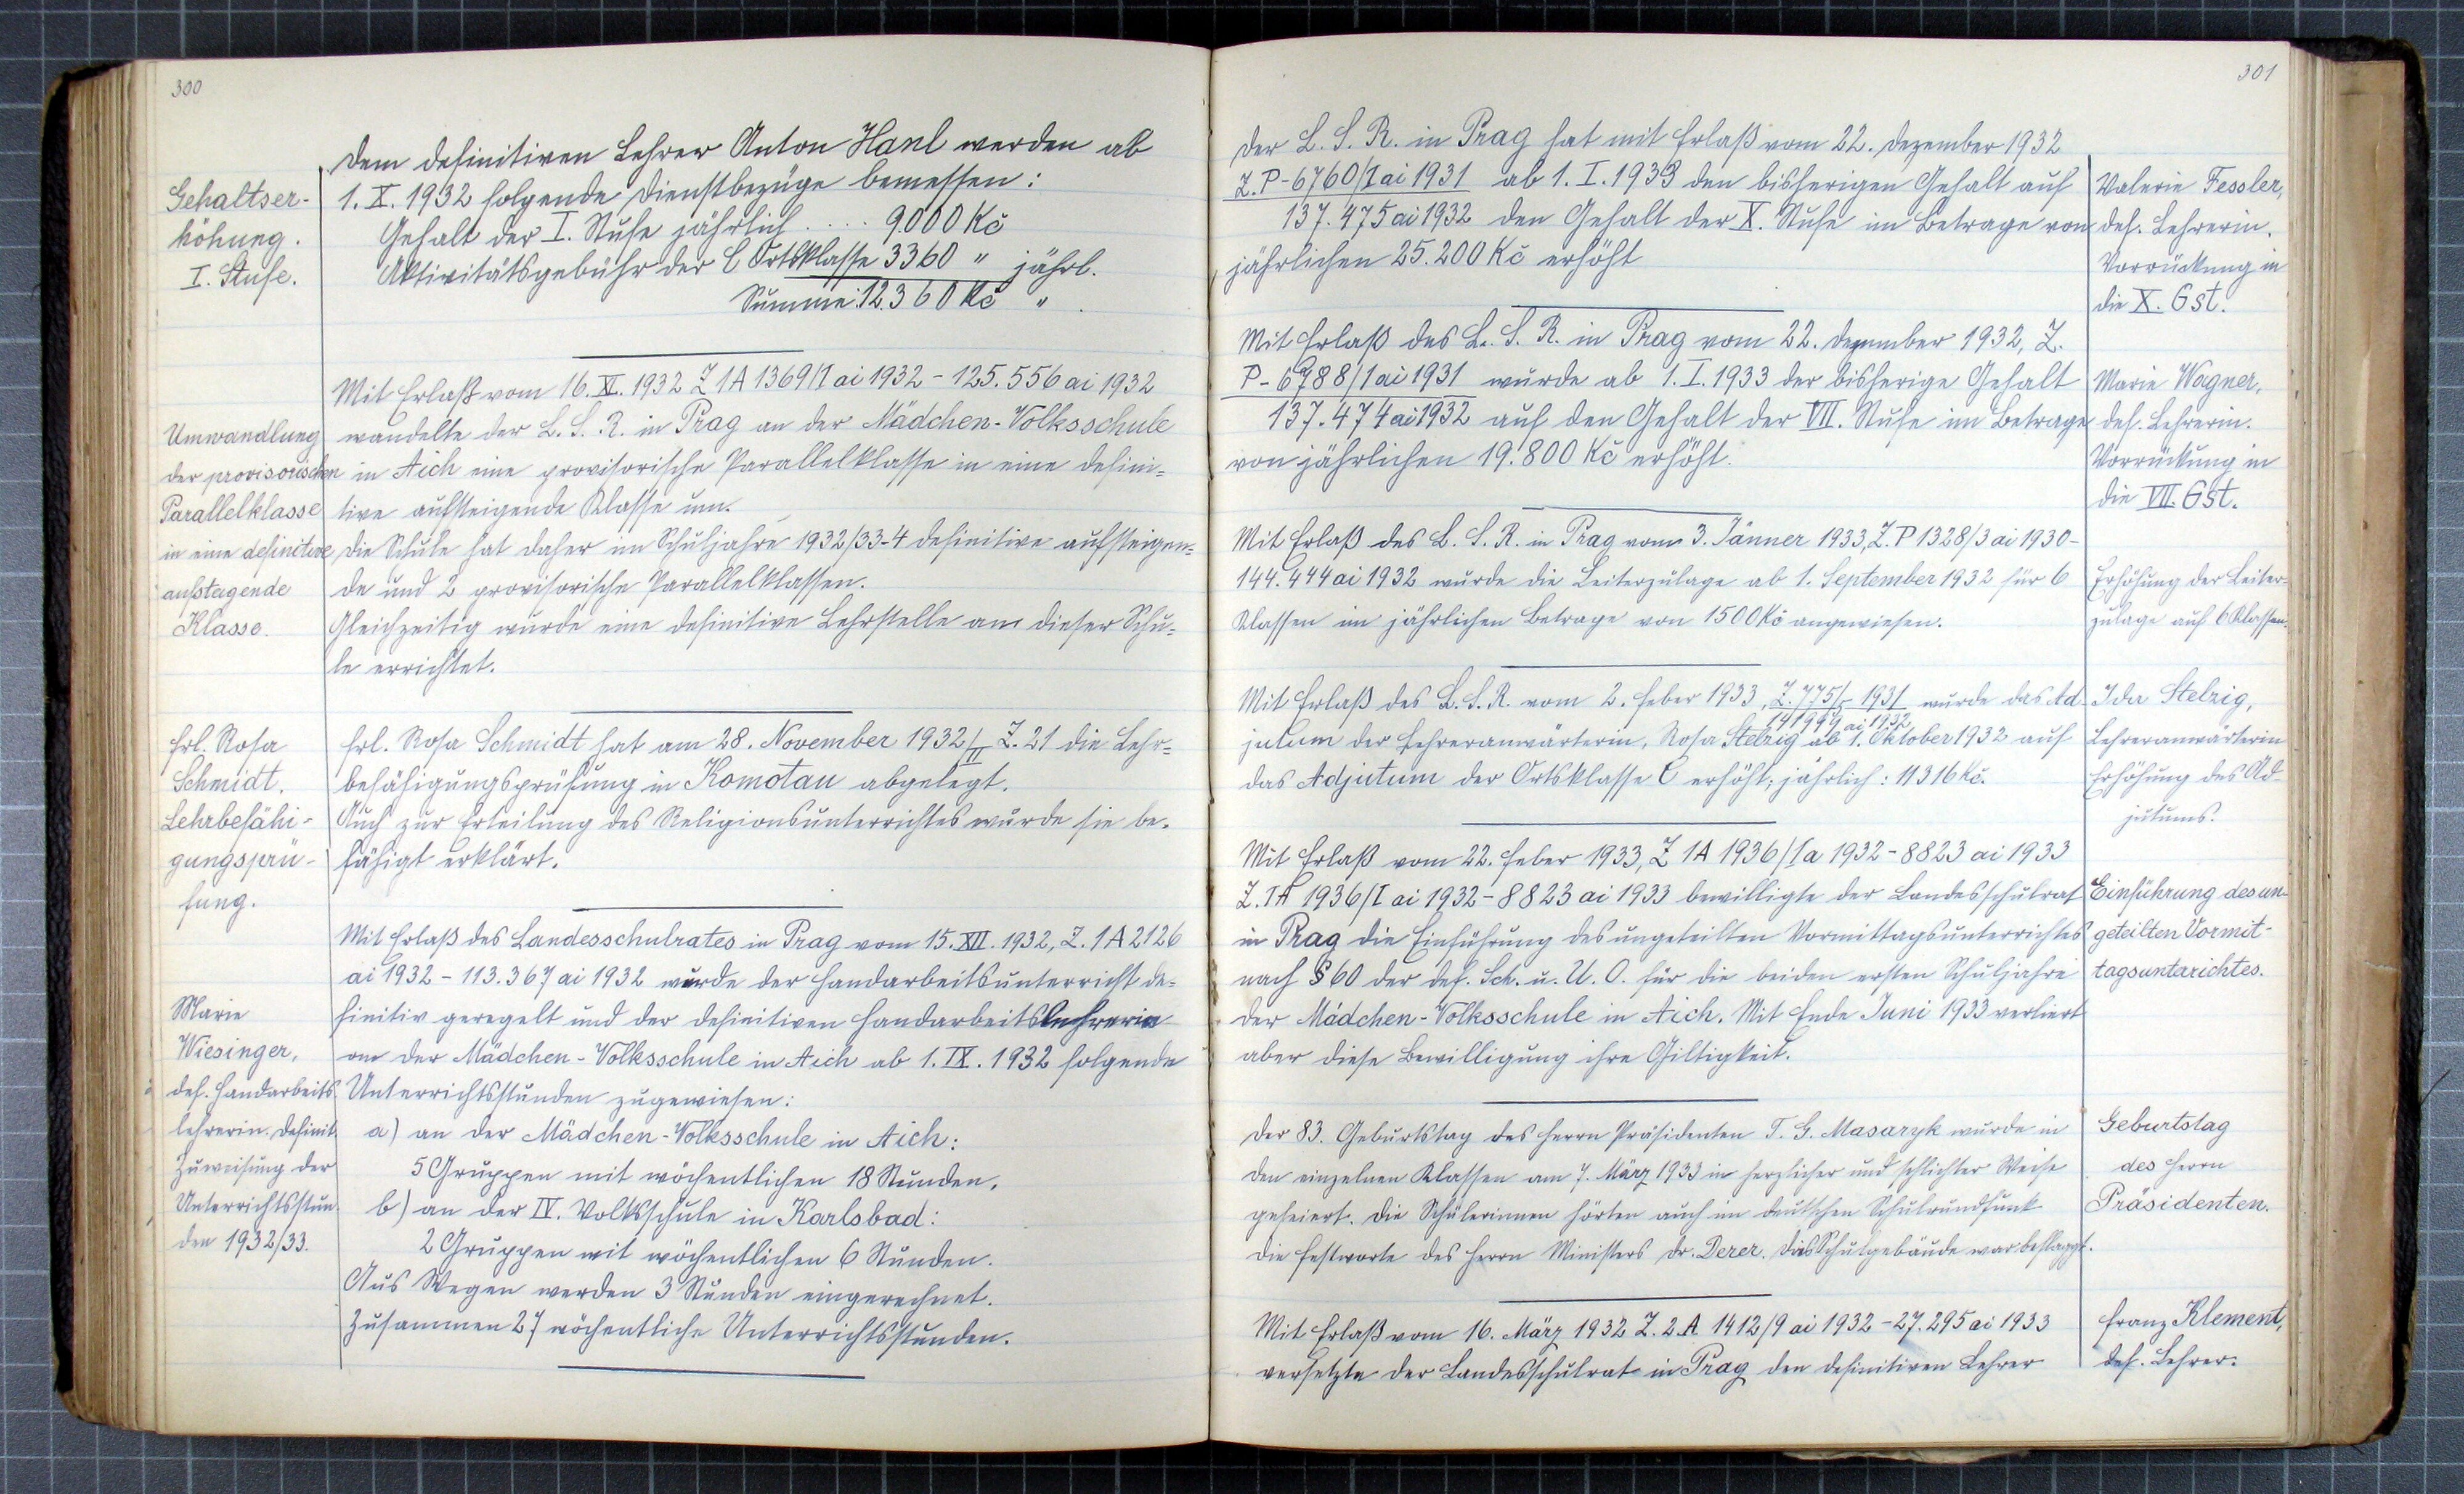 300
Dem definitiven Lehrer Anton Hanl werden ab
1. X. 1932 folgende Dienstbezüge bemessen:
Gehalt der I. Stufe jährlich .... 9000 Kč
Aktivitätsgebühr der C Ortsklasse 3360 " jährl.
Summe: 12.360 Kč " .
Gehaltser-
höhung.
I. Stufe.
Mit Erlaß vom 16. XI. 1932 Z 1A 1369/1 ai 1932 - 125.556 ai 1932
wandelte der L. S. R. in Prag an der Mädchen-Volksschule
in Aich eine provisorische Parallelklasse in eine defini=
tive aufsteigende Klasse um.
Die Schule hat daher im Schuljahre 1932/33 - 4 definitive aufsteigen=
de und 2 provisorische Parallelklassen.
Gleichzeitig wurde eine definitive Lehrstelle an dieser Schu=
le errichtet.
Umwandlung
der provisorischen
Parallelklasse
in eine definitive
aufsteigende
Klasse.
Frl. Rosa Schmidt hat am 28. November 1932/II Z. 21 die Lehr=
befähigungsprüfung in Komotau abgelegt.
Auch zur Erteilung des Religionsunterrichtes wurde sie be-
fähigt erklärt.
Frl. Rosa
Schmidt.
Lehrbefähi-
gungsprü-
fung.
Mit Erlaß des Landesschulrates in Prag vom 15. XII. 1932, Z. 1A 2126
ai 1932 - 113.367 ai 1932 wurde der Handarbeitsunterricht de=
finitiv geregelt und der definitiven Handarbeitslehrerin
an der Mädchen-Volksschule in Aich ab 1. IX. 1932 folgende
Unterrichtsstunden zugewiesen:
a) an der Mädchen-Volksschule in Aich:
5 Gruppen mit wöchentlichen 18 Stunden.
b) an der IV. Volksschule in Karlsbad:
2 Gruppen mit wöchentlichen 6 Stunden.
Aus Wegen werden 3 Stunden eingerechnet.
Zusammen 27 wöchentliche Unterrichtsstunden.
Marie
Wiesinger,
def. Handarbeits
lehrerin. Definit.
Zuweisung der
Unterrichtsstun.
den 1932/33.
301
Der L. S. R. in Prag hat mit Erlaß vom 22. Dezember 1932
Z. P-6760/I ai 1931 ab 1. I. 1933 den bisherigen Gehalt auf
137.475 ai 1932 den Gehalt der X. Stufe im Betrage von
jährlichen 25.200 Kč erhöht
Valerie Fessler,
def. Lehrerin.
Vorrückung in
die X. Gst.
Mit Erlaß des L. S. R. in Prag vom 22. Dezember 1932, Z.
P-6788/1 ai 1931 wurde ab 1. I. 1933 der bisherige Gehalt
137.474 ai 1932 auf den Gehalt der VII. Stufe im Betrage
von jährlichen 19.800 Kč erhöht.
Marie Wagner,
def. Lehrerin.
Vorrückung in
die VII. Gst.
Mit Erlaß des L. S. R. in Prag vom 3. Jänner 1933, Z. P 1328/3 ai 1930 -
144.444 ai 1932 wurde die Leiterzulage ab 1. September 1932 für 6
Klassen im jährlichen Betrage von 1500 Kč angewiesen.
Erhöhung der Leiter=
zulage auf 6 Klassen.
Mit Erlaß des L. S. R. vom 2. Feber 1933, Z. 775/ 1931 wurde das Ad-
ai 1932
jutum der Lehreranwärterin, Rosa Stelzig ab 1. Oktober 1932 auf
das Adjutum der Ortsklasse C erhöht; jährlich: 11316 Kč.
Ida Stelzig,
Lehreranwärterin
Erhöhung des Ad-
jutums.
Mit Erlaß vom 22. Feber 1933, Z 1A 1936/Ia 1932 - 8823 ai 1933
Z. IA 1936/I ai 1932 - 8823 ai 1933 bewilligte der Landesschulrat
in Prag die Einführung des ungeteilten Vormittagsunterrichtes
nach § 60 der def. Sch. u. U. O. für die beiden ersten Schuljahre
der Mädchen-Volksschule in Aich. Mit Ende Juni 1933 verliert
aber diese Bewilligung ihre Giltigkeit.
Einführung des un-
geteilten Vormit-
tagsunterichtes.
Der 83. Geburtstag des Herrn Präsidenten T. G. Masaryk wurde in
den einzelnen Klassen am 7. März 1933 in herzlicher und schlichter Weise
gefeiert. Die Schülerinnen hörten auch im deutschen Schulrundfunk
die Festworte des Herrn Ministers Dr. Derer. Das Schulgebäude war beflaggt.
Geburtstag
des Herrn
Präsidenten.
Mit Erlaß vom 16. März 1932 Z. 2. A 1412/9 ai 1932 - 27.295 ai 1933
versetzte der Landesschulrat in Prag den definitiven Lehrer
Franz Klement,
def. Lehrer.